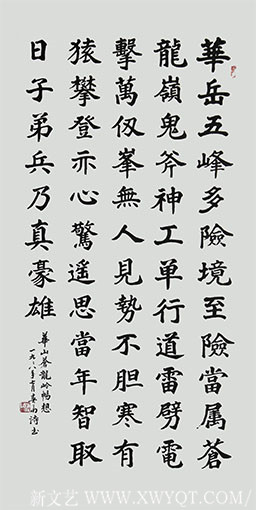 華岳五峰多險境至險當属蒼
龍嶺鬼斧神工単行道雷劈電
擊萬仭峯無人見勢不胆寒有
猿攀登亦心驚遥思當年智取
日子弟兵乃真豪雄
華山蒼龍岭暢想
新文艺 WWW.XWYQT.COM/